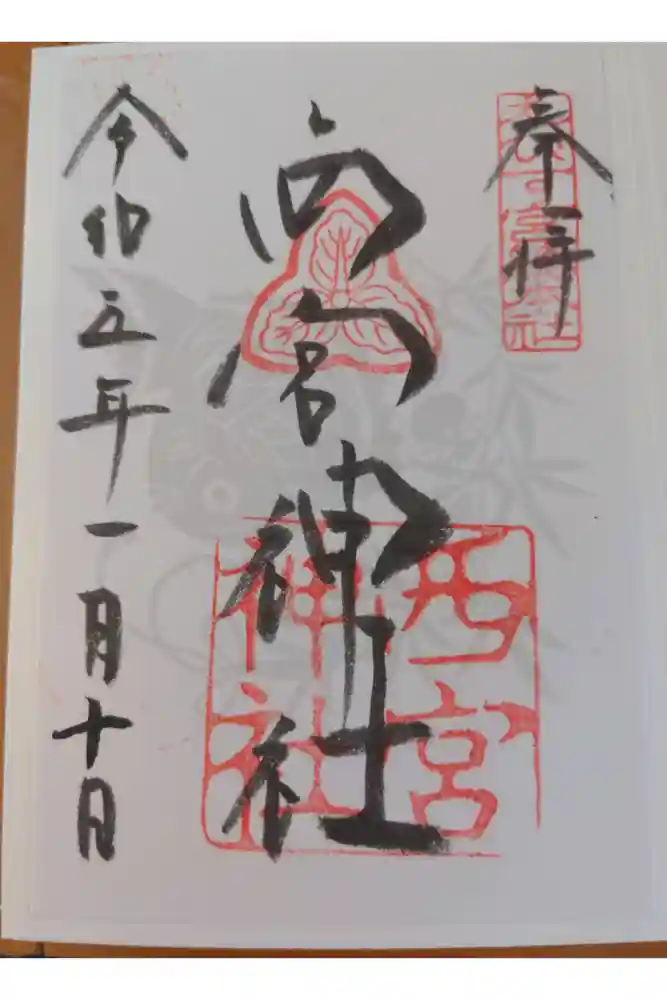 奉拝
西宮神社
西宮
神社
令和五年一月十日